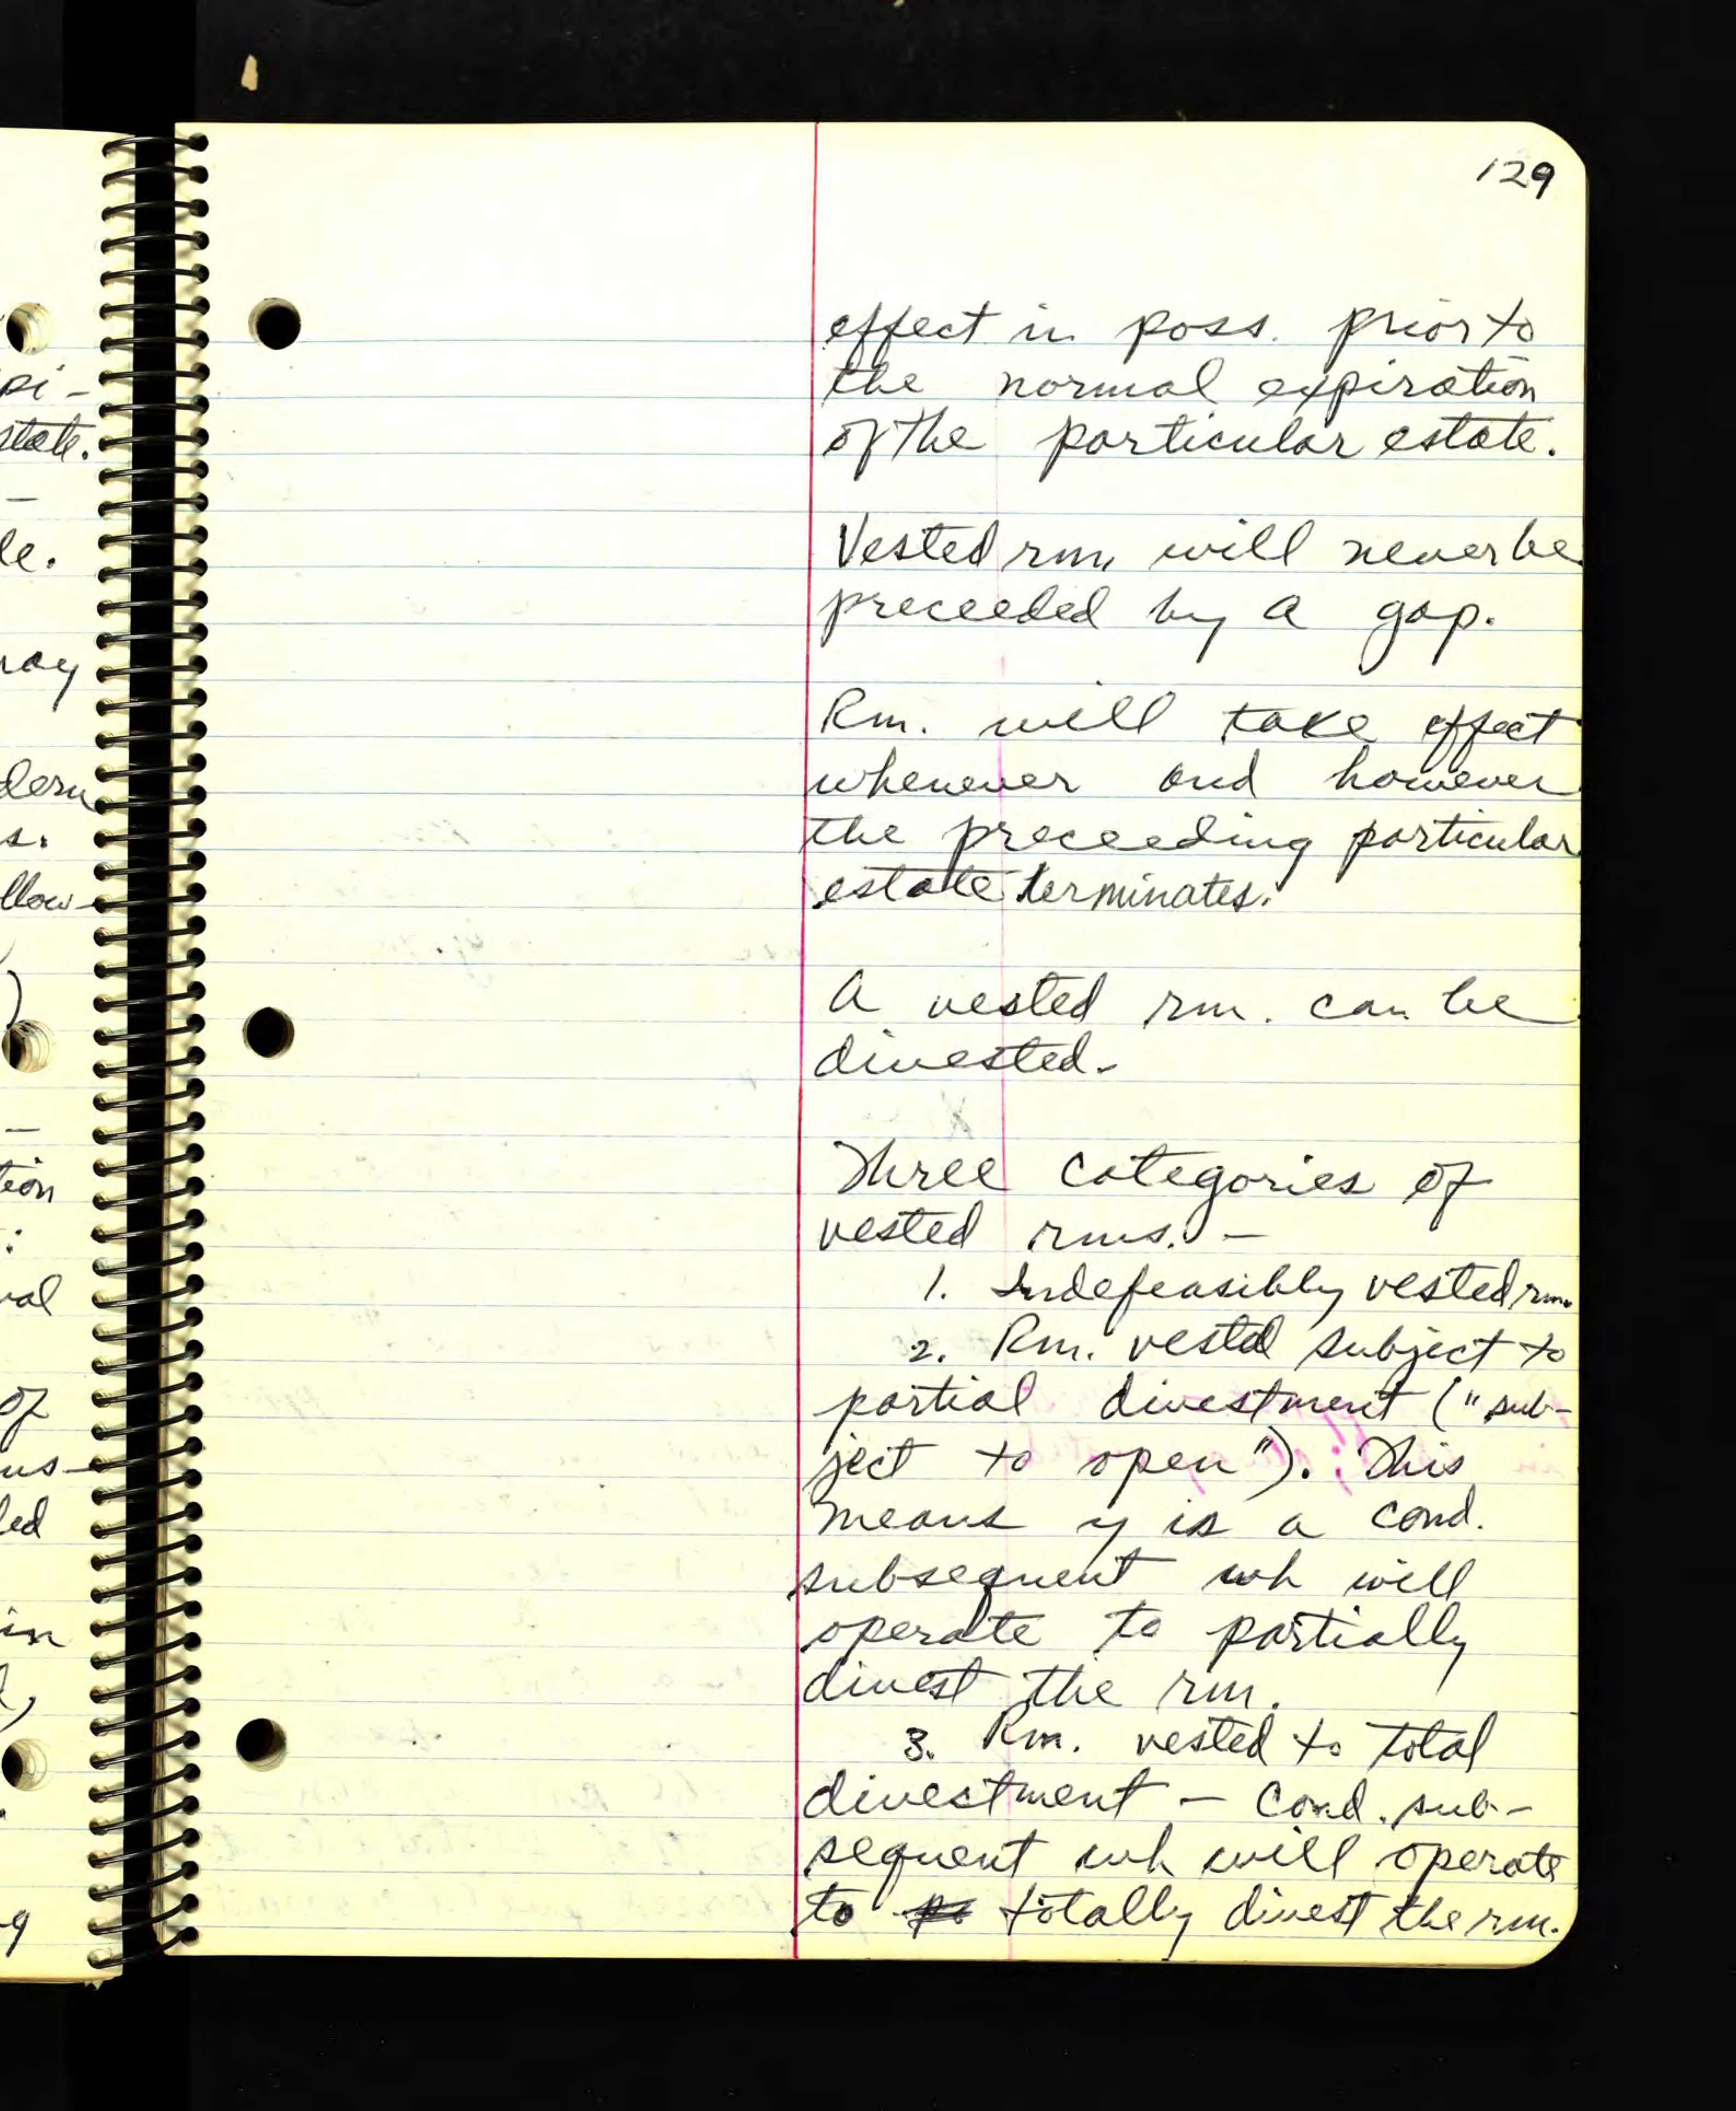 129
effect in poss. prior to
the normal expiration
of the particular estate.
Vested rm. will never be
preceeded by a gap.
Rm. will take effect
whenever and however
the preceeding particular
estate terminates.
A vested rm. can be
divested.
Three categories of
vested rms. -
1. Indefeasibly vested rm.
2. Rm. vested subject to
partial divestment ("sub-
ject to open"). This
means y is a cond.
subsequent wh will
operate to partially
divest the rm.
3. Rm. vested to total
divestment - cond. sub-
sequent wh will operate
to totally divest the rm.
pi-
state.
le.
dern
s.
llow-
tion
:
of
us-
led
in